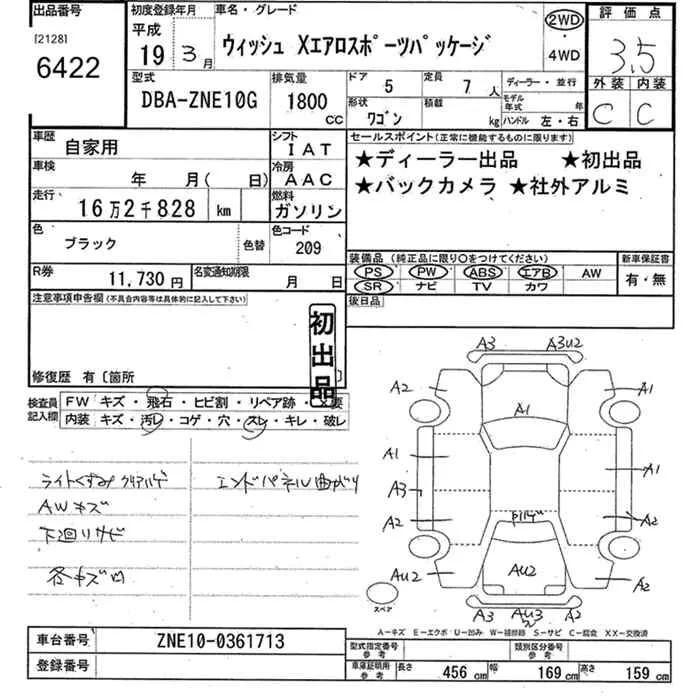 出品番号 初度登録年月 車名・グレード 2WD 評価点
[2128] 平成
6422 19 3月 ウィッシュ Xエアロスポーツパッケージ ・ 4WD 3.5
型式 排気量 ドア 5 定員 7 人 ディーラー・並行 外装 内装
DBA-ZNE10G 1800 cc 形状 ワゴン 積載 kg モデル年式 年 ハンドル 左・右 C C
車歴 自家用 シフト IAT セールスポイント(正常に機能するものに限ります)
車検 年 月( 日) 冷房 AAC ★ディーラー出品 ★初出品
走行 16万2千828 km 燃料 ガソリン ★バックカメラ ★社外アルミ
色 ブラック 色替 色コード 209
装備品(純正品に限り○をつけてください) 新車保証書
R券 11,730円 名変通知期限 月 日 PS PW ABS エアB AW 有・無
SR ナビ TV カワ
注意事項申告欄(不具合内容等は具体的に記入して下さい) 後日品
初出品
修復歴 有〔箇所 〕
検査員記入欄 FW キズ・飛石・ヒビ割・リペア跡・X要
内装 キズ・汚レ・コゲ・穴・スレ・キレ・破レ
A3 A3U2
A2 A1 A1
A1 A1
A3
A2 A2
AU2 AU2 A2
スペア
A3 AU3 A2
ライトくすみ エンドパネル曲がり
AWキズ
下廻りサビ
各キズ凹
A-キズ E-エクボ U-凹み W-補修跡 S-サビ C-腐食 XX-交換済
車台番号 ZNE10-0361713 型式指定番号 参考 類別区分番号 参考
登録番号 車庫証明用 参考 長さ 456 cm 幅 169 cm 高さ 159 cm